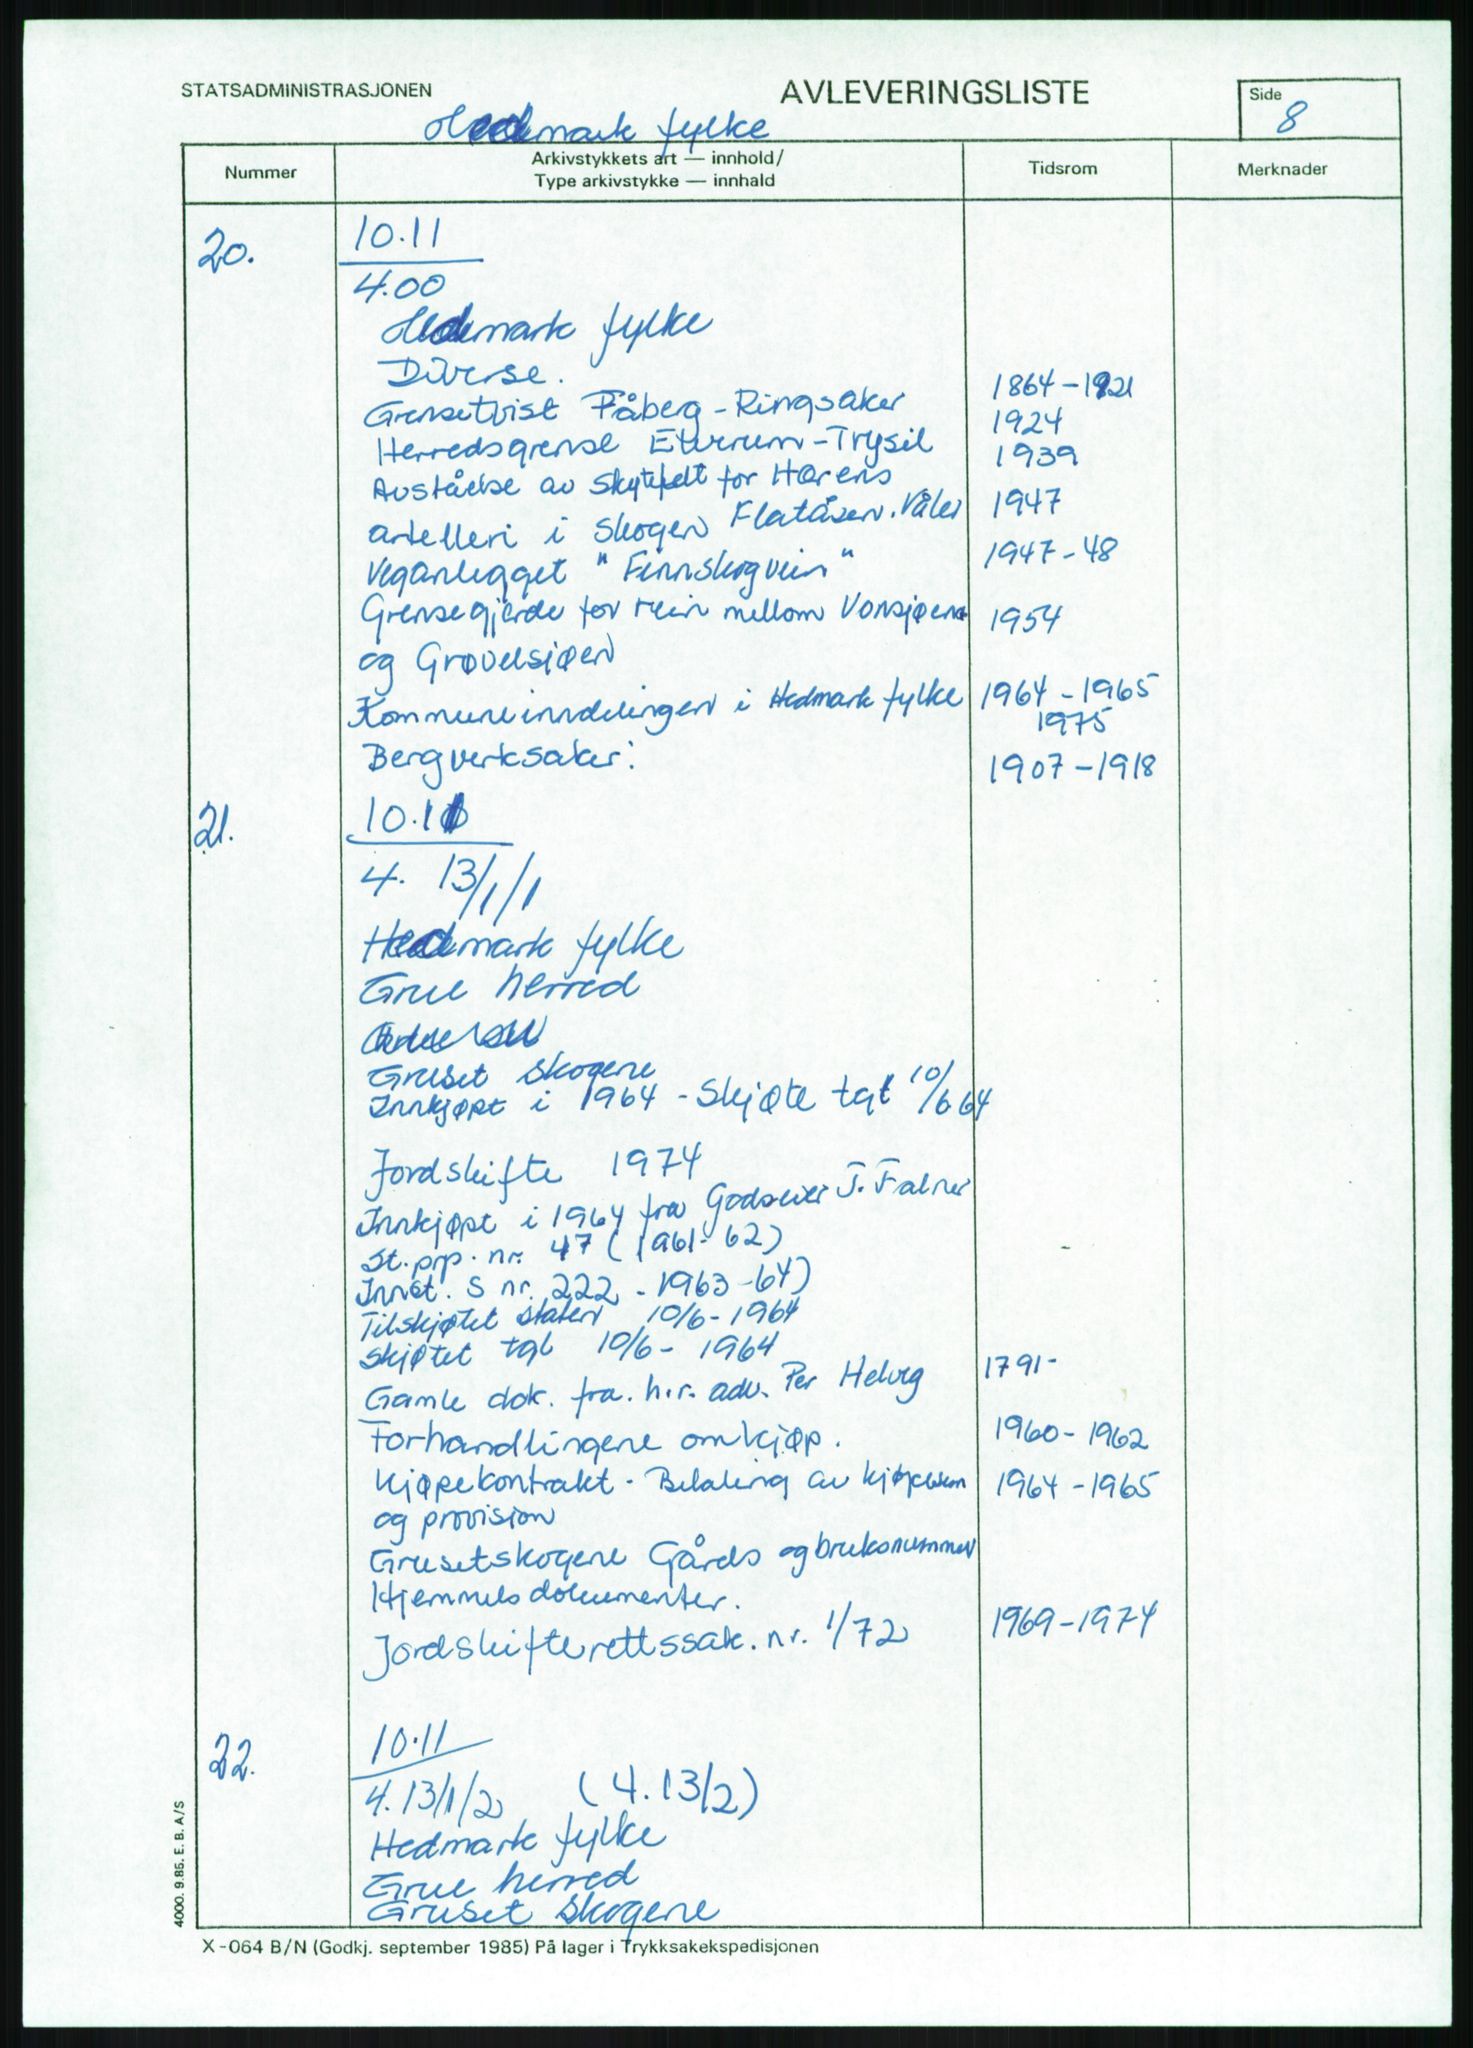 STATSADMINISTRASJONEN
AVLEVERINGSLISTE
Side
8
Hedmark fylke
Nummer
Arkivstykkets art — innhold/
Type arkivstykke — innhald
Tidsrom
Merknader
20.
10.11
4.00
Hedmark fylke
Diverse.
Grensetvist Fåberg - Ringsaker 1864-1921
Herredsgrense Elverum - Trysil 1924
Avståelse av skytefelt for Hærens 1939
artelleri i skogen Flatåsen. Våler 1947
Veganlegget "Finnskogvein" 1947-48
Grensegjerde for rein mellom Vonsjøene 1954
og Grøvelsjøen
Kommuneinndelingen i Hedmark fylke 1964-1965
1975
Bergverksaker: 1907-1918
21.
10.11
4. 13/1/1
Hedmark fylke
Grue herred
Gruset skogene
Innkjøpt i 1964 - Skjøte tgl 10/6 64
Jordskifte 1974
Innkjøpt i 1964 fra Godseier J. Falner
St. prp. nr. 47 (1961-62)
Innst. S nr. 222 - 1963-64)
Tilskjøtet staten 10/6-1964
Skjøtet tgl 10/6-1964
Gamle dok. fra. h.r. adv. Per Helvig 1791-
Forhandlingene om kjøp. 1960-1962
Kjøpekontrakt - Betaling av kjøpesum 1964-1965
og provisjon
Grusetskogene Gårds og bruksnummer
Hjemmelsdokumenter.
Jordskifterettssak. nr. 1/72 1969-1974
22.
10.11
4.13/1/2 (4.13/2)
Hedmark fylke
Grue herred
Gruset skogene
4000. 9.85. E. B. A/S
X-064 B/N (Godkj. september 1985) På lager i Trykksakekspedisjonen